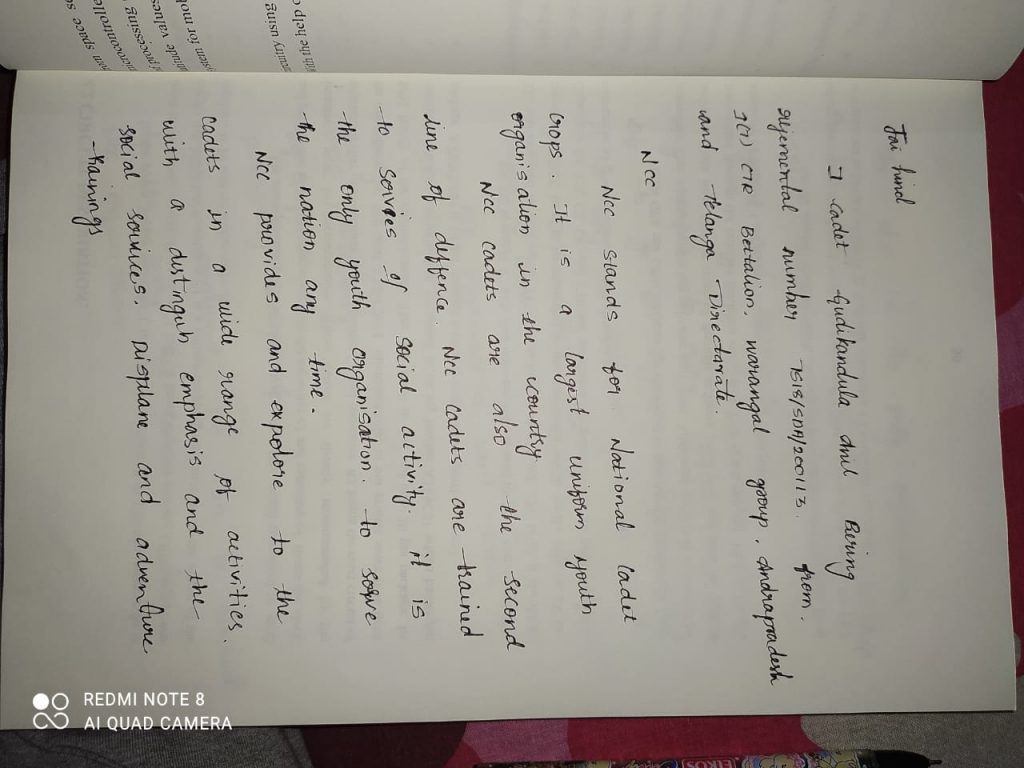 Jai hind
I cadet Gudikandula Anil Bering
regimental number TS15/SDA/200113. from.
I(1) CTR Bettalion, warangal group, Andrapradesh
and Telanga Directarate.
NCC
NCC stands for National Cadet
Crops. It is a largest uniform youth
organisation in the country
NCC cadets are also the second
line of deffence. NCC cadets are trained
to servies of social activity. it is
the only youth organisaton. to solve
the nation any time.
NCC provides and expolore to the
cadets in a wide range of activities.
with a distinguh emphasis and the
social sourices, Displane and adventure
trainings
with the help o
security using
system for mol
itude values
processing
microcontrolle
space se
REDMI NOTE 8
AI QUAD CAMERA
EIKOS